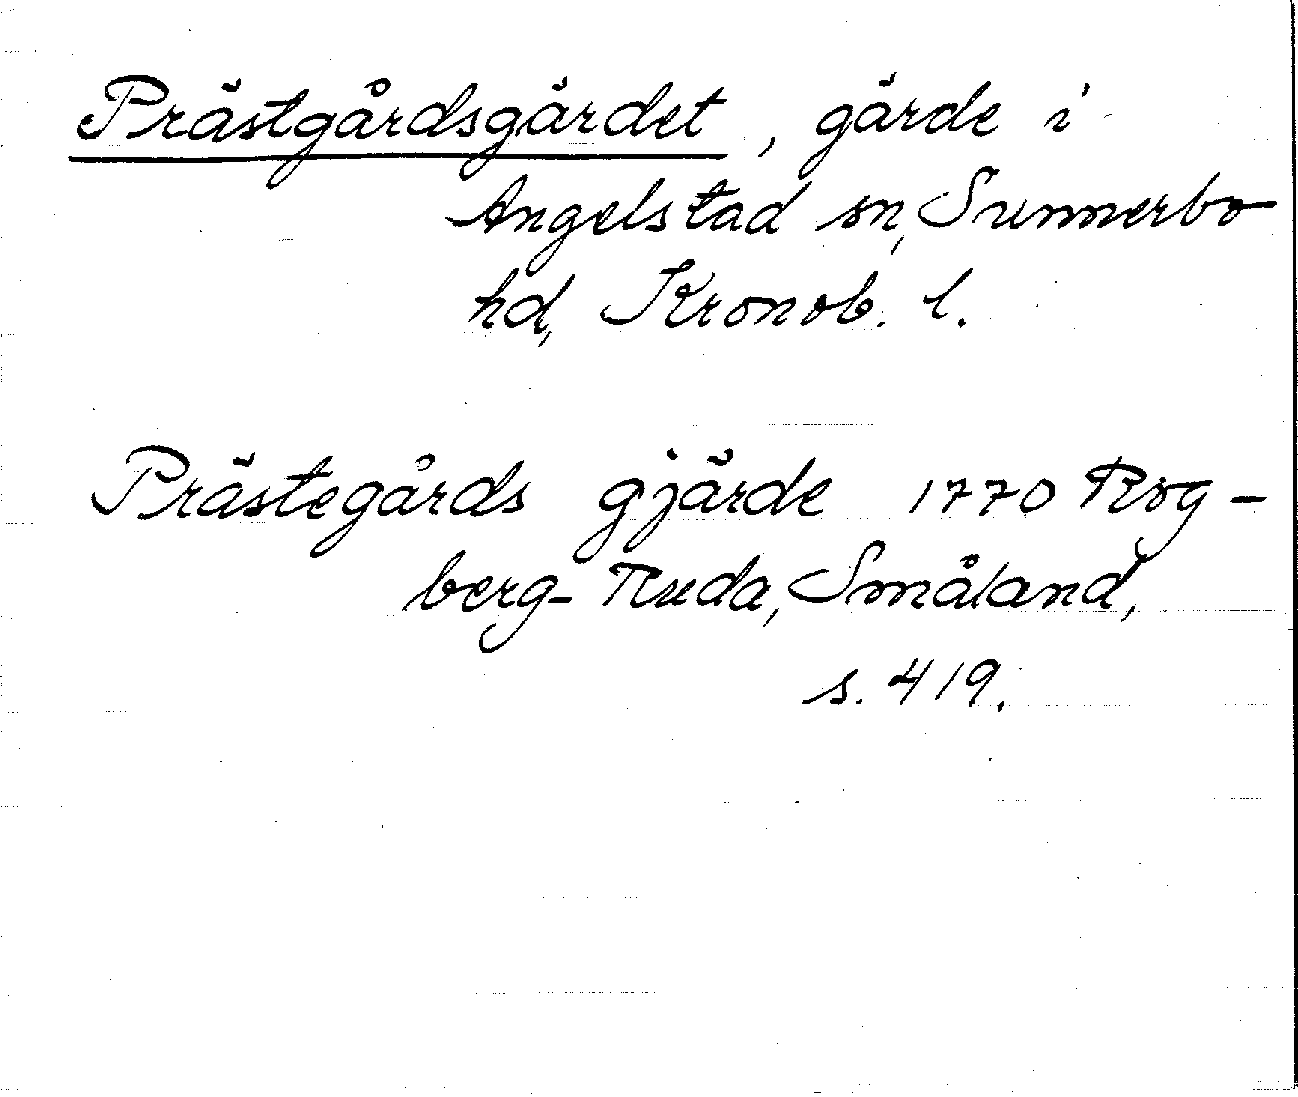 Prästgårdsgärdet, gärde i
Angelstad sn, Sunnerbo
hd, Kronob. l.
Prästegårds gjärde 1770 Rog-
berg-Ruda, Småland,
s. 419.